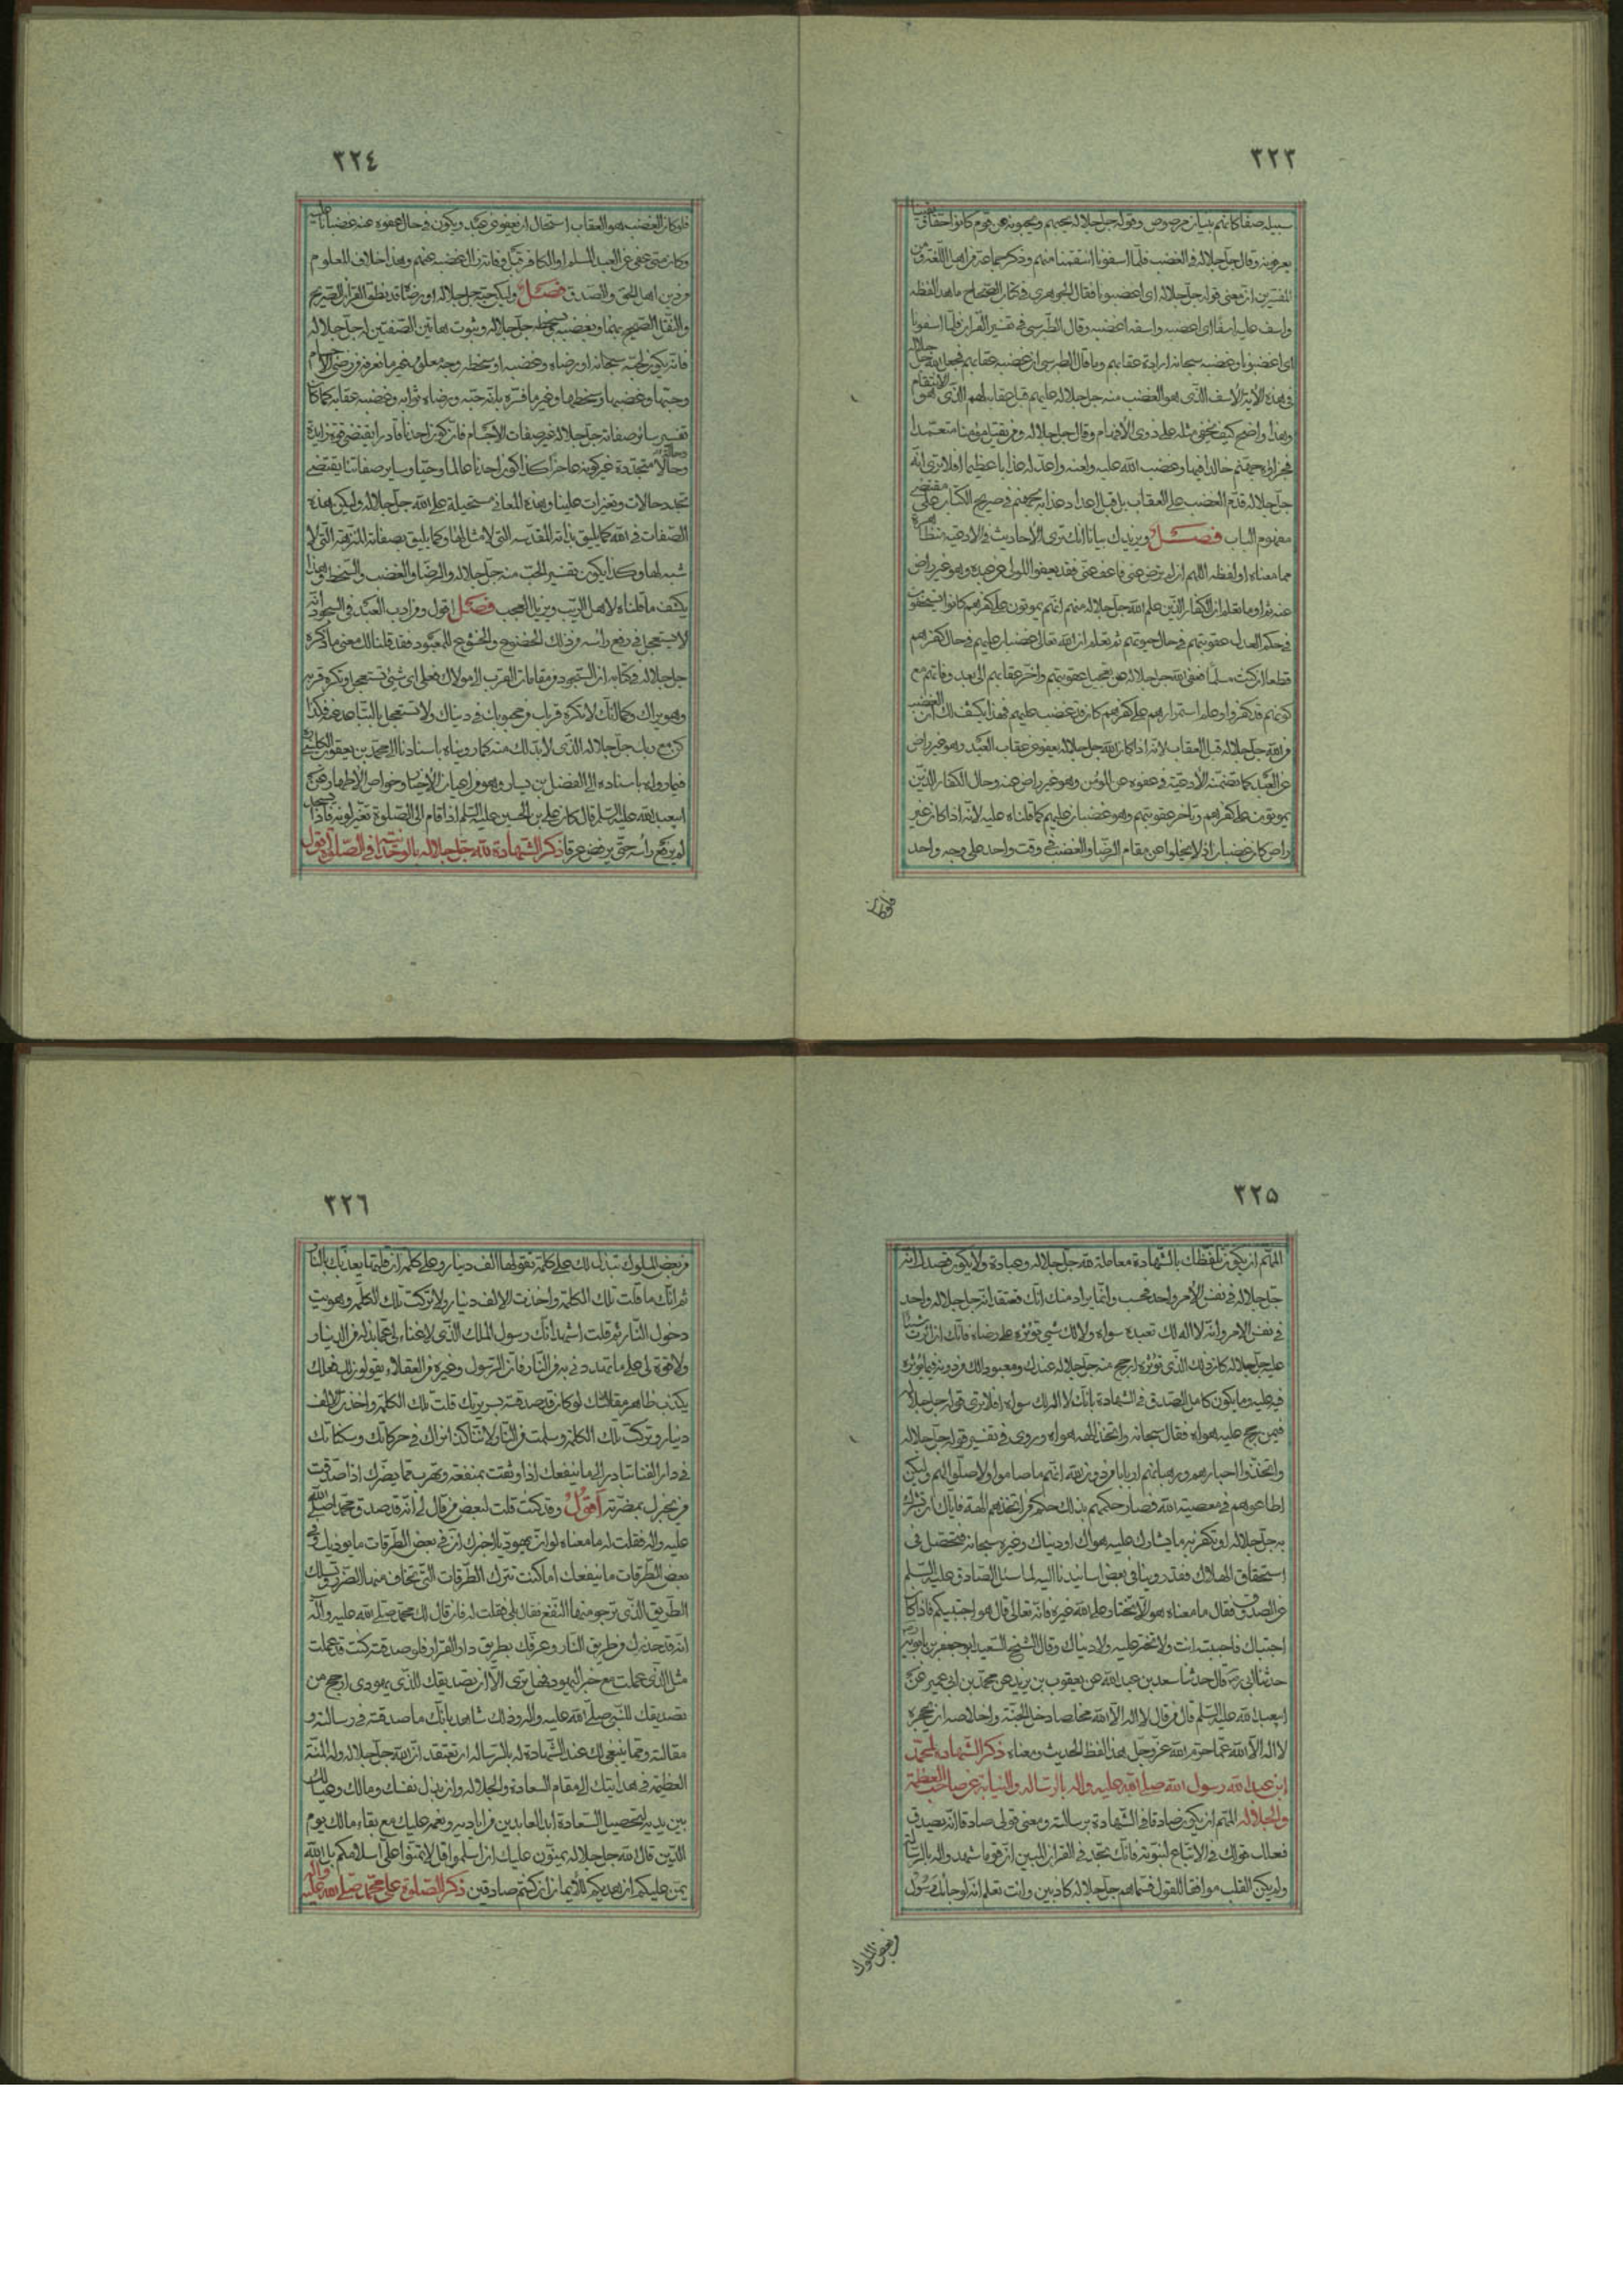 ٣٢٣
سبيله صفا كانهم بنيان مرصوص وقوله جل جلاله يحبهم ويحبونه عن قوم كانوا
يعرفونه وقال جل جلاله في الغضب فلما اسفونا انتقمنا منهم وذكر جماعة من اهل اللغة ومن
المفسرين ان معنى قوله جل جلاله اى اغضبونا فقال الجوهرى في كتاب الصحاح ما هذا لفظه
واسف عليه اسفا اى غضب واسفه اغضبه وقال الطبرسي في تفسير القران فلما اسفونا
اى اغضبونا وغضبه سبحانه ارادة عقابهم وما قال الطبرسي ان غضبه عقابهم فجعل الله جل جلاله
في هذه الاية الاسف الذى هو الغضب منه جل جلاله عليهم قبل عقابه لهم الذى هو الانتقام
وهذا واضح كيف يخفى مثله على ذوى الافهام وقال جل جلاله ومن يقتل مؤمنا متعمدا
فجزاؤه جهنم خالدا فيها وغضب الله عليه ولعنه واعد له عذابا عظيما افلا ترى انه
جل جلاله قدم الغضب على العقاب بل قبل اعداد عذابه بجهنم في صريح الكتاب على مقتضى
مفهوم الباب فصل ويزيدك بيانا انك ترى الاحاديث في الادعية متظاهرة
مما معناه او لفظه اللهم ان لم ترض عنى فاعف عنى فقد يعفو المولى عن عبده وهو غير راض
عنه او ما تعلم ان الكفار الذين علم الله جل جلاله منهم انهم يموتون على كفرهم كانوا يستحقون
في حكم العدل عقوبتهم في حال حيوتهم ثم تعلم ان الله تعالى غضبان عليهم في حال كفرهم
قطعا ان كنت مسلما فعفى الله جل جلاله عن تعجيل عقوبتهم واخر عقابهم الى بعد وفاتهم مع
كونهم قد كفروا وعلم استمرارهم على كفرهم كان قد غضب عليهم فهذا يكشف لك ان الغضب
من الله جل جلاله قبل العقاب لانه اذا كان الله جل جلاله يعفو عن عقاب العبد وهو غير راض
عن العبد كما تضمنته الادعية في عفوه عن المؤمن وهو غير راض عنه وحال الكفار الذين
يموتون على كفرهم وتاخر عقوبتهم وهو غضبان عليهم كما قلناه عليه لانه اذا كان غير
راض كان غضبان اذ لا يخلوا من مقام الرضا والغضب في وقت واحد على وجه واحد
فلو كان
٣٢٤
فلو كان الغضب هو العقاب استحال ان يعفو عن عبد ويكون في حال عفوه عنه غضبانا عليه
وكان متى عفى عن العبد المسلم او الكافر تبين وفاته زال غضبه عنهم وهذا خلاف المعلوم
من دين اهل الحق والصدق فصل وليكن حبه جل جلاله او رضاه قد نطق القران الصريح
والنقل الصحيح بهما وبغضبه وسخطه جل جلاله وثبوت هاتين الصفتين له جل جلاله
فانه يكون لحبه سبحانه او رضاه وغضبه او سخطه وجه معلوم غير ما نعرفه من رضى الاجسام
وحبها وغضبها وسخطها وغير ما فسره بانه حبه ورضاه ثوابه وغضبه عقابه كما كان
تفسير سائر صفاته جل جلاله غير صفات الاجسام فان كون احدنا قادرا يقتضى قوة زايدة
وحالا متجددة غير كونه عاجزا وكذا كون احدنا عالما وحيا وساير صفاتنا يقتضى
تجدد حالات وتغيرات علينا وهذه المعانى مستحيلة على الله جل جلاله وليكن هذه
الصفات في الله كما يليق بذاته المقدسة التى لا مثل لها وكما يليق بصفاته المنزهة التى لا
شبه لها وكذا يكون تفسير الحب منه جل جلاله والرضا والغضب والسخط وهذا
يكشف ما قلناه لاهل الريب ويزيل العجب فصل اقول ومن ادب العبد في السجود انه
لا يستعجل في رفع راسه من ذلك الخضوع والخشوع للمعبود فقد قلنا لك معنى ما ذكره
جل جلاله في كتابه ان السجود من مقامات القرب الى مولاك فعلى اى شئ تستعجل وتكره قربه
وهو يراك وكما انك لا تكره قرب احبابك ومحبوبك في دنياك ولا تستعجل بالتباعد عنه فكذا
كن مع رب جل جلاله الذى لا بد لك منه كما رويناه باسنادنا الى محمد بن يعقوب الكلينى
فيما رواه باسناده الى الفضل بن يسار وهو من اعيان الاخيار وخواص الاطهار عن
ابيعبد الله عليه السلم قال كان على بن الحسين عليه السلم اذا قام الى الصلوة تغير لونه فاذا سجد
لم يرفع راسه حتى يرفض عرقا ذكر الشهادة لله جل جلاله بالوحدانية في الصلوة اقول
٣٢٥
المهم ان يكون تلفظك بالشهادة معاملة لله جل جلاله وعبادة ولا يكون قصدك انه
جل جلاله في نفس الامر واحد فحسب وانما يراد منك انك تعتقد انه جل جلاله واحد
في نفس الامر وانه لا اله لك تعبده سواه ولا لك شئ تؤثره على رضاه فانك ان اثرت شيئا
عليه جل جلاله كان ذلك الذى تؤثره ارجح منه جل جلاله عندك ومعبودا لك من دونه فيما تؤثره
فيه عليه وما يكون كامل الصدق في الشهادة بانك لا اله لك سواه افلا ترى قوله جل جلاله
فيمن رجح عليه هواه فقال سبحانه واتخذ الهه هواه وروى في تفسير قوله جل جلاله
واتخذوا احبارهم ورهبانهم اربابا من دون الله انهم ما صاموا ولا صلوا لهم وليكن
اطاعوهم في معصية الله فصار حكمهم بذلك حكم من اتخذهم الهة فاياك ان تشرك
به جل جلاله او تكفر به ما يشارك عليه هواك او دنياك وغيره سبحانه فتحصل في
استحقاق الهلاك فقد روينا في بعض اسانيدنا اليه لما سئل الصادق عليه السلم
عن الصدق فقال ما معناه هو ان لا تختار على الله غيره فانه تعالى قال هو اجتبيكم فاذا كان
اجتباك فاجتبه انت ولا تختر عليه ولا دنياك وقال الشيخ السعيد ابو جعفر بن بابويه
حدثنا ابى ره قال حدثنا سعد بن عبد الله عن يعقوب بن يزيد عن محمد بن ابى عمير عن
ابيعبد الله عليه السلم قال من قال لا اله الا الله مخلصا دخل الجنة واخلاصه ان يحجزه
لا اله الا الله عما حرم الله عز وجل هذا لفظ الحديث ومعناه ذكر الشهادة لمحمد
ابن عبد الله رسول الله صلى الله عليه واله بالرسالة والنيابة عن صاحب العظمة
والجلالة المهم ان يكون صادقا في الشهادة برسالته ومعنى قولى صادقا انه يصدق
فعلك قولك في الاتباع لنبوته فانك تجد في القران المبين ان قوما شهدوا له بالرسالة
ولم يكن القلب موافقا للقول فسماهم جل جلاله كاذبين وانت تعلم انه لو جائك رسول
من بعض الملوك
٣٢٦
من بعض الملوك تبذل لك على كلمة تقولها الف دينار وعلى كلمة ان قلتها يعذبك بالنار
ثم انك ما قلت تلك الكلمة واخذت الالف دينار ولا تركت تلك الكلمة وهويت
دخول النار ثم قلت اشهد انك رسول الملك الذى لا غناء لى عما بذله من الدينار
ولا قوة لى على ما تهددنى به من النار فان الرسول وغيره من العقلاء يقولون لك فعلك
يكذب ظاهر مقالتك لو كان قد صدقت سريرتك قلت تلك الكلمة واخذت الالف
دينار وتركت تلك الكلمة وسلمت من النار لاننا كذا نراك في حركاتك وسكناتك
في دار الفنا تبادر الى ما ينفعك اذا وثقت بمنفعته وتهرب مما يضرك اذا صدقت
من يخبرك بمضرته اقول وقد كنت قلت لبعض من قال لى انه قد صدق محمدا صلى الله
عليه واله فقلت له ما معناه لو ان يهوديا اخبرك ان في بعض الطرقات ما يوذيك وفى
بعض الطرقات ما ينفعك اما كنت تترك الطرقات التى تخاف منها الضرر وتسلك
الطريق الذى ترجو منها النفع فقال بلى فقلت له فان قال لك محمد صلى الله عليه واله
انه قد حذرك من طريق النار وعرفك بطريق دار القرار فلو صدقته كنت قد عملت
مثل الذى عملت مع خبر اليهود فهل ترى الا ان تصديقك للذى يهودى ارجح من
تصديقك للنبى صلى الله عليه واله وذلك شاهد بانك ما صدقته في رسالته و
مقالته ومما ينبغى لك عند الشهادة له بالرسالة ان تعتقد ان الله جل جلاله وله المنة
العظيمة في هدايتك الى مقام السعادة والجلالة وان بذل نفسك ومالك وعيالك
بين يديه لتحصيل السعادة ابد العابدين من اياديه ونعمه عليك مع بقاء مالك يوم
الدين قال الله جل جلاله يمنون عليك ان اسلموا قل لا تمنوا على اسلامكم بل الله
يمن عليكم ان هديكم للايمان ان كنتم صادقين ذكر الصلوة على محمد صلى الله عليه واله